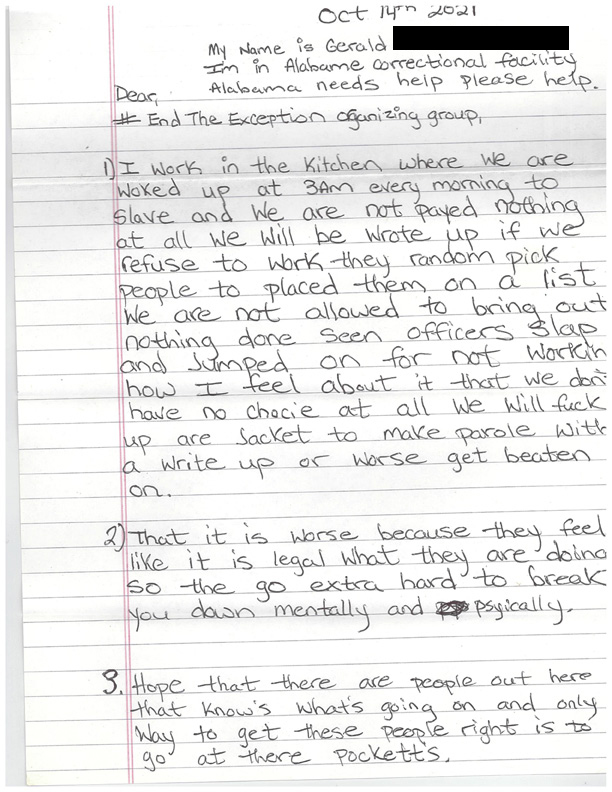 Oct 14th 2021
My Name is Gerald
I'm in Alabame correctional facility
Alabama needs help please help.
Dear,
# End The Exception oganizing group,
1) I work in the kitchen where we are
woked up at 3Am every morning to
slave and we are not payed nothing
at all we will be wrote up if we
refuse to work they random pick
people to placed them on a list
we are not allowed to bring out
nothing done seen officers slap
and jumped on for not workin
how I feel about it that we don't
have no chocie at all we will fuck
up are Jacket to make parole with
a write up or worse get beaten
on.
2) That it is worse because they feel
like it is legal what they are doing
so the go extra hard to break
you down mentally and psyically.
3. Hope that there are people out here
that know's what's going on and only
way to get these people right is to
go at there pockett's.